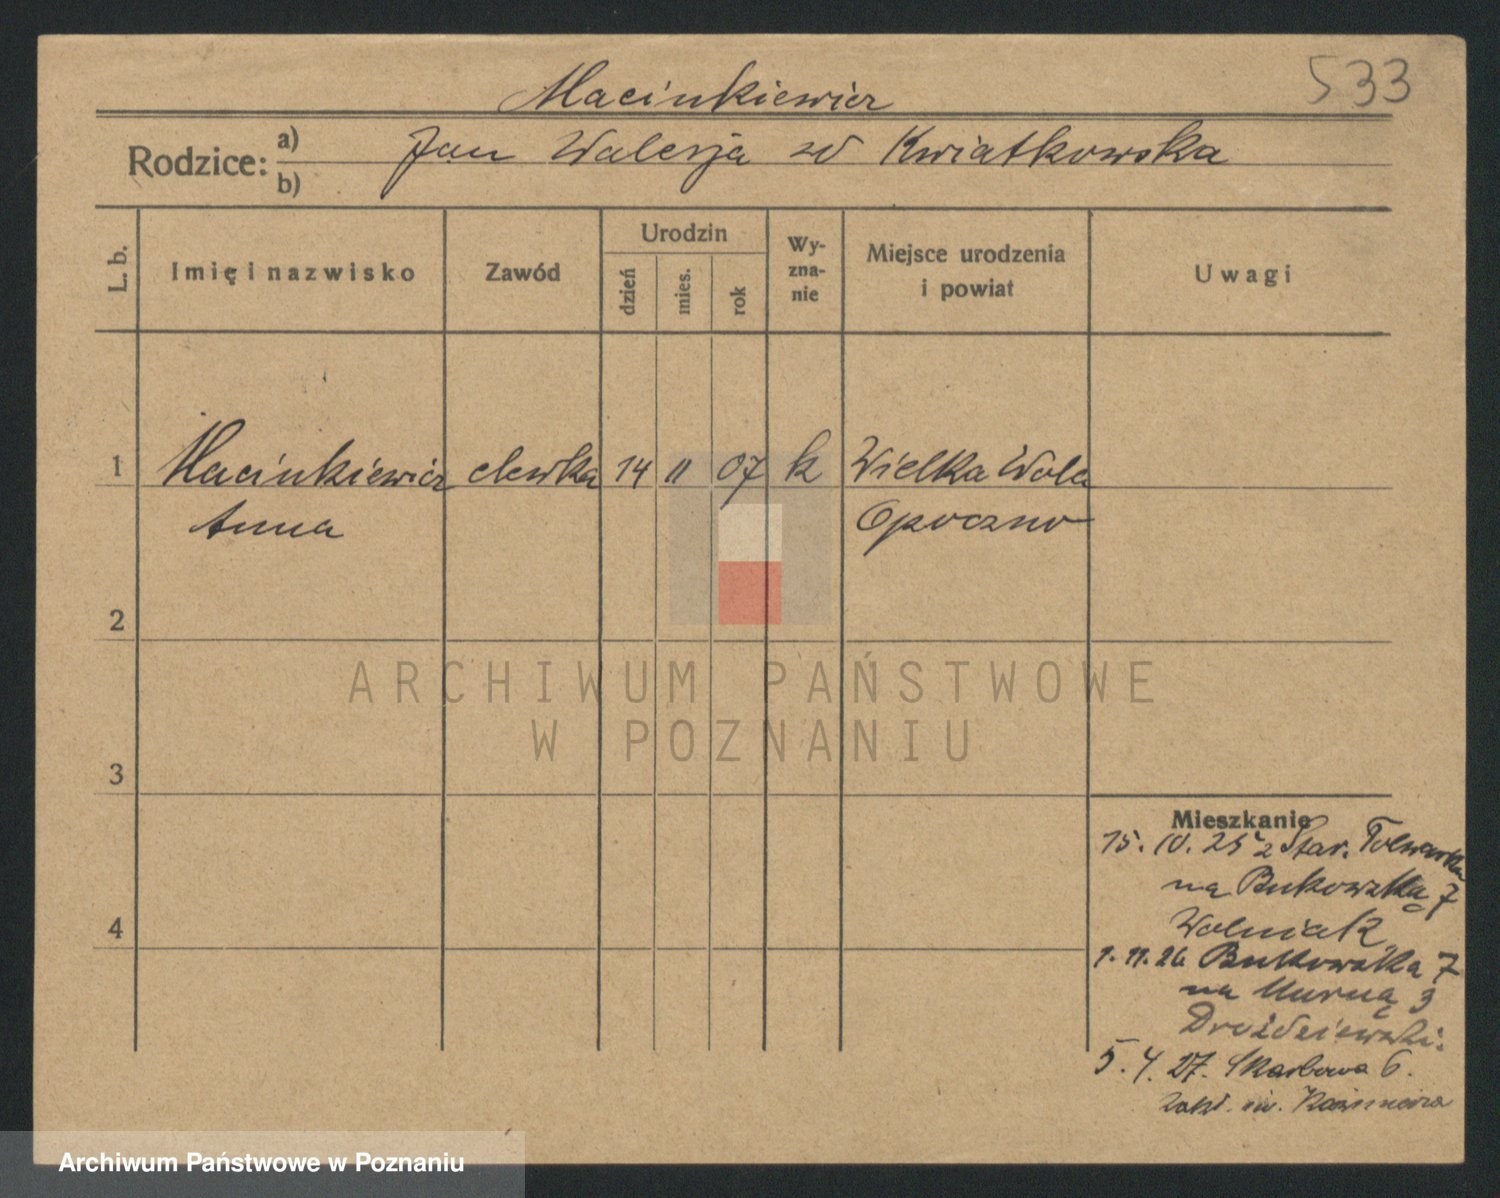 533
Macinkiewicz
Rodzice: a) b)
Jan Walerja zd Kwiatkowska
L. b.
Imię i nazwisko
Zawód
Urodzin
dzień
mies.
rok
Wy-
zna-
nie
Miejsce urodzenia
i powiat
Uwagi
1 Macinkiewicz 14 11 07 k Wielka Wola
Anna Opoczno
2
3
4
Mieszkanie
15. 10. 25 z Star. Folwarku
na Bukowską 7
Wolniak
1. 11. 26 Bukowska 7
na Murną 3
5. 4. 27. Skarbowa 6.
Zakł. św. Kazimierza
ARCHIWUM PAŃSTWOWE
W POZNANIU
Archiwum Państwowe w Poznaniu